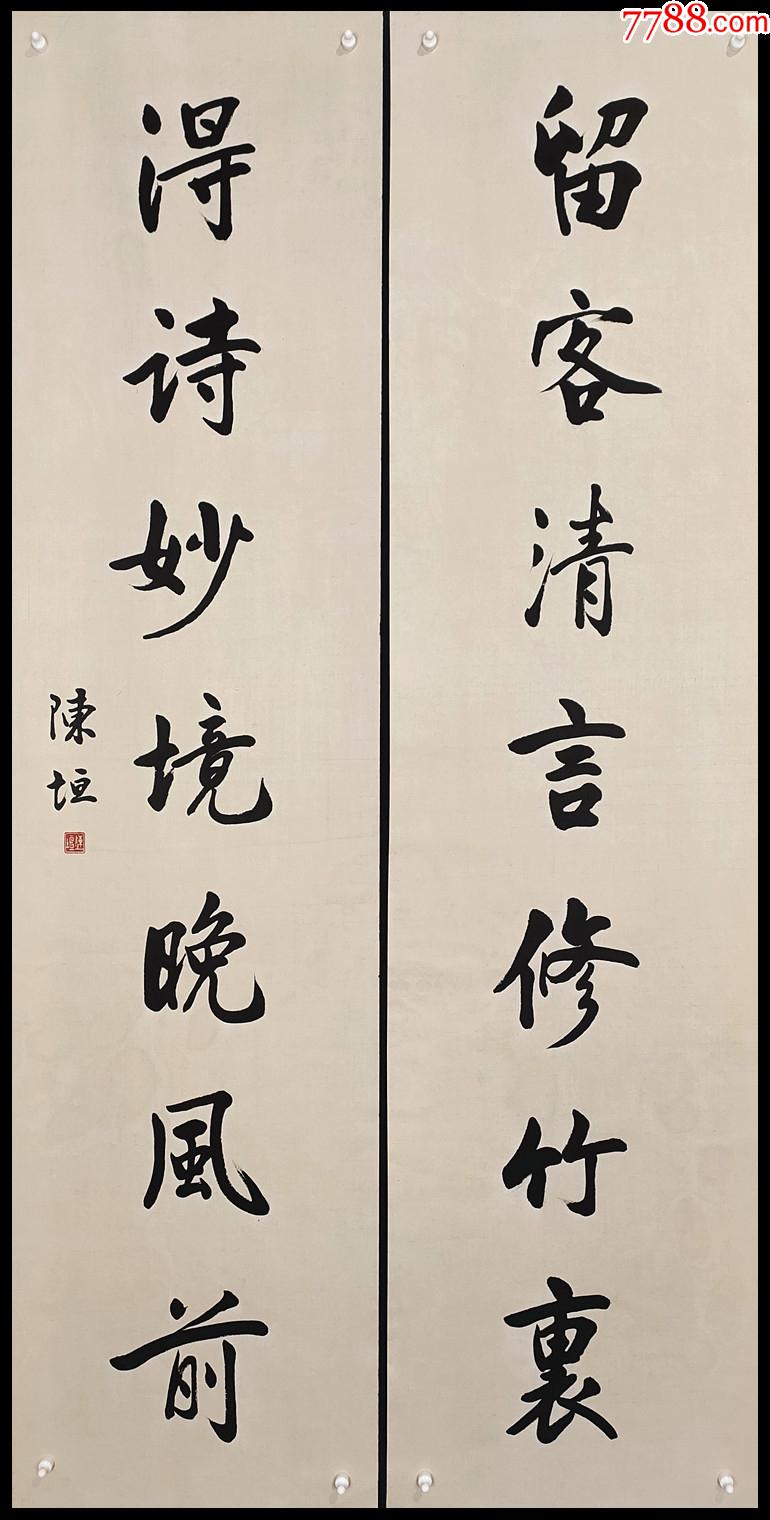 7788.com
留客清言修竹裏
得诗妙境晚風前
陳垣